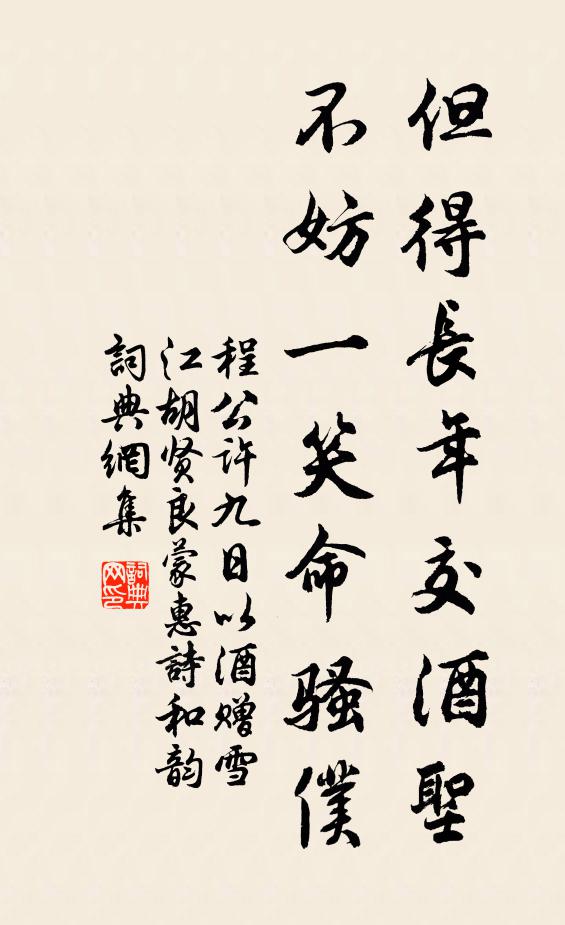 但得長年交酒聖
不妨一笑命騷僕
程公许九日以酒赠雪
江胡贤良蒙惠詩和韵
詞典網集
詞典网印